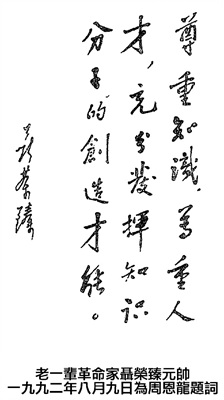 尊重知識，尊重人
才，充分發揮知识
分子的創造才能。
聂荣臻
老一輩革命家聶榮臻元帥
一九九二年八月九日為周恩龍題詞